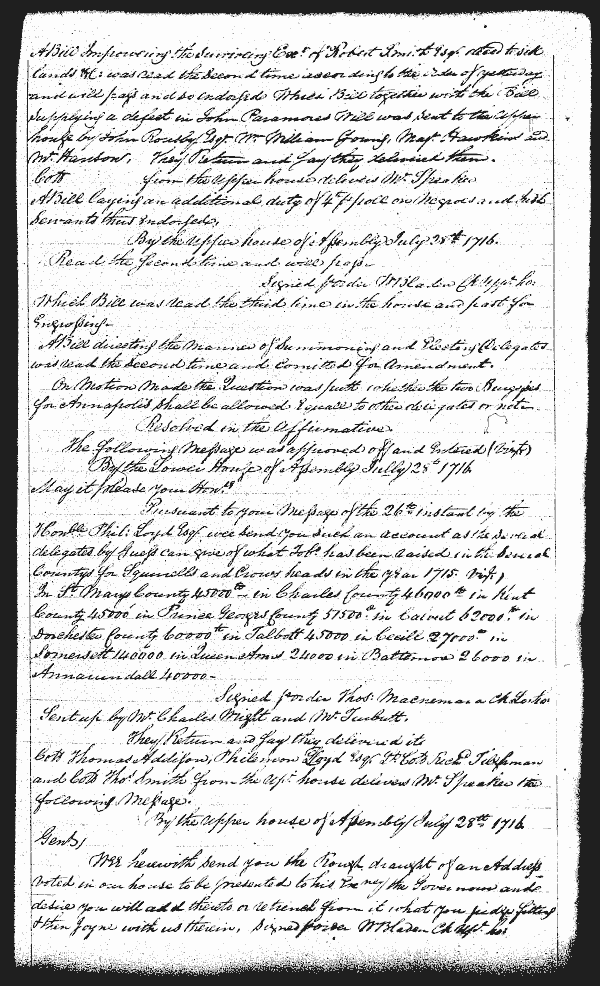 A Bill Impowering the Surviving Exr. of Robert Smith Esqr. decd to sell
Lands &c: was read the Second time according to the order of yesterday
and will pass and so Endorsed Which Bill together with the Bill
Supplying a defect in John Paramores Will was Sent to the upper
house by John Rousby Esqr. Mr. William Young, Majr. Hawkins and
Mr. Hanson. They Return and say they delivered them.
Coll from the upper house delivers Mr. Speaker
A Bill laying an additional duty of p poll on Negroes and Irish
Servants thus Endorsed,
By the upper house of Assembly July 28th 1716.
Read the Second time and will pass
Signed p order W Bladen Cl. uppr. ho:
Which Bill was read the third time in the house and past for
Engrossing
A Bill directing the Manner of Summoning and Electing Delegates
was read the Second time and Comitted for Amendment.
On Motion made the Question was putt whether the two Burgesses
for Annapolis shall be allowed Equall to other delegates or not
Resolved in the Affirmative
The following Message was approved off and Entered (Vizt)
By the Lower House of Assembly July 28th 1716
May it please your Honrs
Pursuant to your Message of the 26th instant by the
Honble Phil: Loyd Esqr. wee send you such an account as the Several
delegates by Guess can give of what Tobo. has been raised in the Several
Countys for Squirrells and Crows heads in the year 1715. Vizt,
In St. Marys County 45000th in Charles County 46000th in Kent
County 45000 in Prince Georges County 51500th in Calvert 62000th in
Dorchester County 60000th in Talbott 45000 in Cecill 27000th in
Somersett 140000 in Queen Anns 24000 in Baltemore 26000 in
Annarundall 40000
Signed p order Thos: Macnemara Cl. Lo: ho
Sent up by Mr. Charles Wright and Mr. Turbutt.
They Return and say they delivered it
Coll Thomas Addison, Philemon Lloyd Esqr. Lt. Coll. Richd Tilghman
and Coll Thos. Smith from the upr. house delivers Mr. Speaker the
following Message.
By the upper house of Assembly July 28th 1716
Gent,
Wee herewith send you the Rough draught of an Address
voted in our house to be presented to his Exncy the Governour and
desire you will add thereto or retrench from it what you judge fitting
& then Joyne with us therein, Signed p order W Bladen Cl. upr. ho: